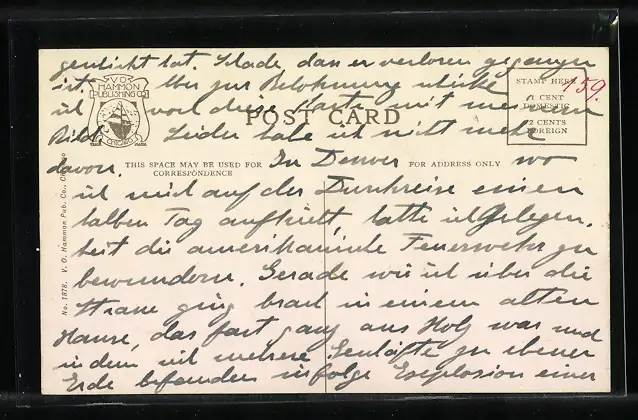 gemacht hat. Schade, dass er verloren gegangen
ist. Aber zur Belohnung schicke
ich noch diese Karte mit meinem
Bild. Leider habe ich nicht mehr
davon. In Denver wo
ich mich auf der Durchreise einen
halben Tag aufhielt, hatte ich Gelegen.
heit die amerikanische Feuerwehr zu
bewundern. Gerade wie ich über die
Strasse ging brach in einem alten
Hause, das fast ganz aus Holz war und
in dem sich mehrere Geschäfte zu ebener
Erde befanden infolge Explosion einer
V.O. HAMMON PUBLISHING CO.
CHICAGO
TRADE MARK
POST CARD
STAMP HERE
1 CENT
DOMESTIC
2 CENTS
FOREIGN
159.
THIS SPACE MAY BE USED FOR
CORRESPONDENCE
FOR ADDRESS ONLY
No. 1878. V. O. Hammon Pub. Co., Chicago